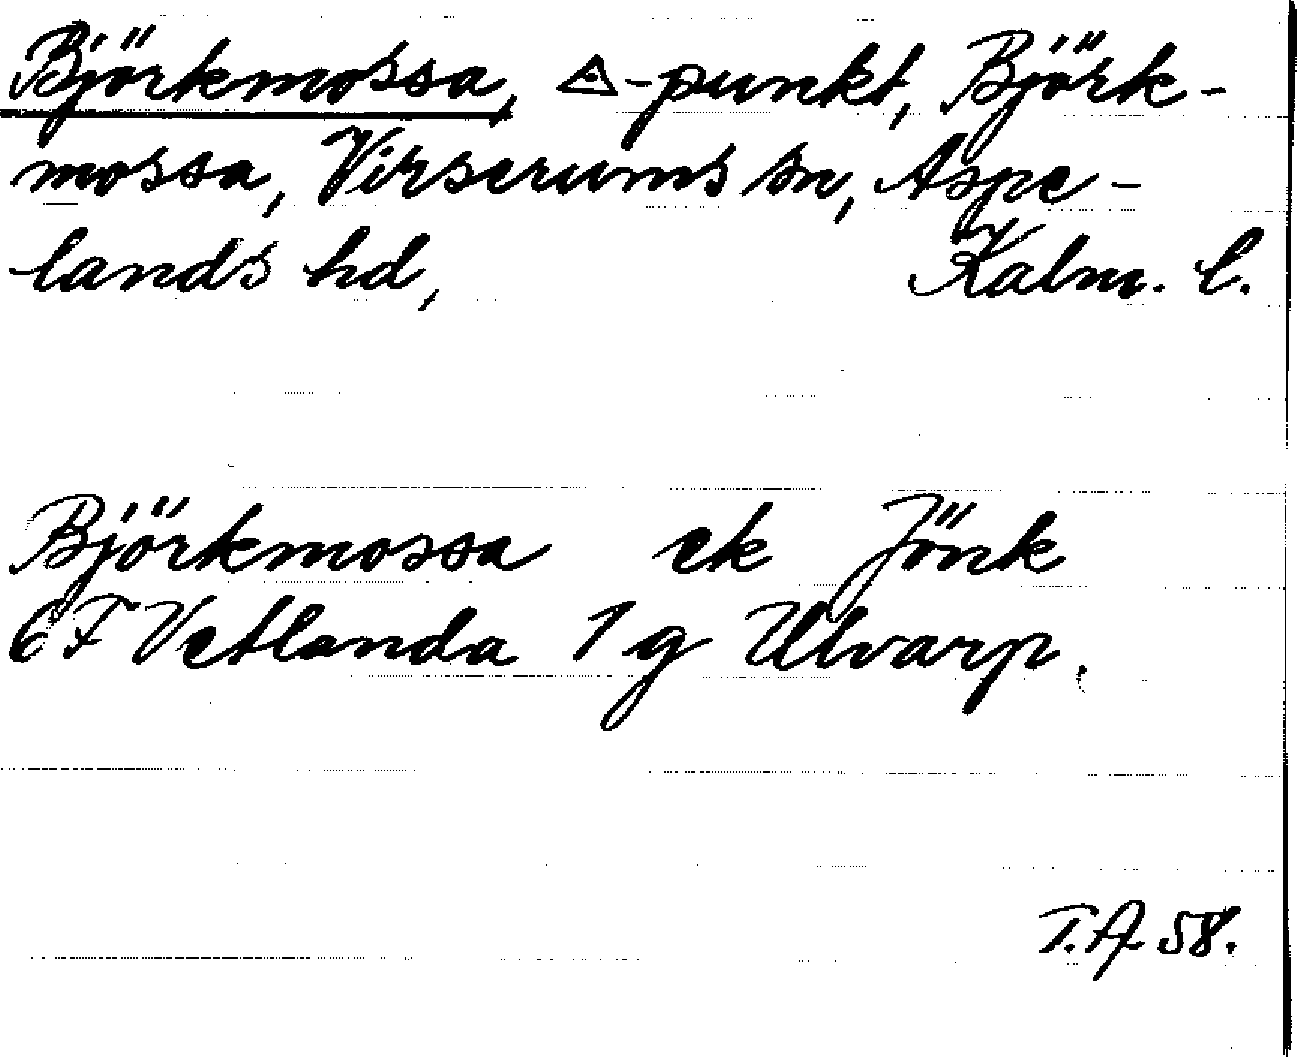 Björkmossa, △-punkt, Björk-
mossa, Virserums sn, Aspe-
lands hd, Kalm. l.
Björkmossa ek Jönk
6F Vetlanda 1g Ulvarp.
T.A. 58.